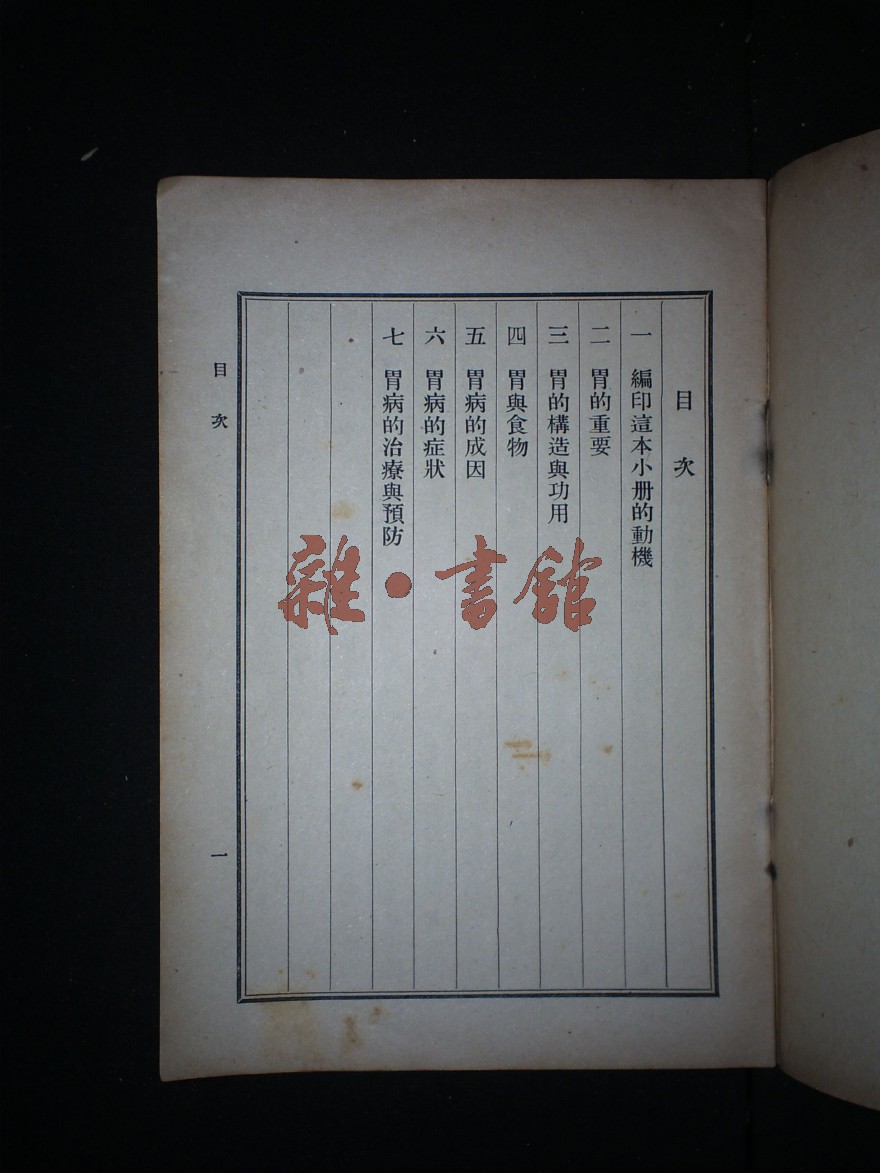 目次
一　編印這本小册的動機
二　胃的重要
三　胃的構造與功用
四　胃與食物
五　胃病的成因
六　胃病的症狀
七　胃病的治療與預防
目次
一
雜·書館